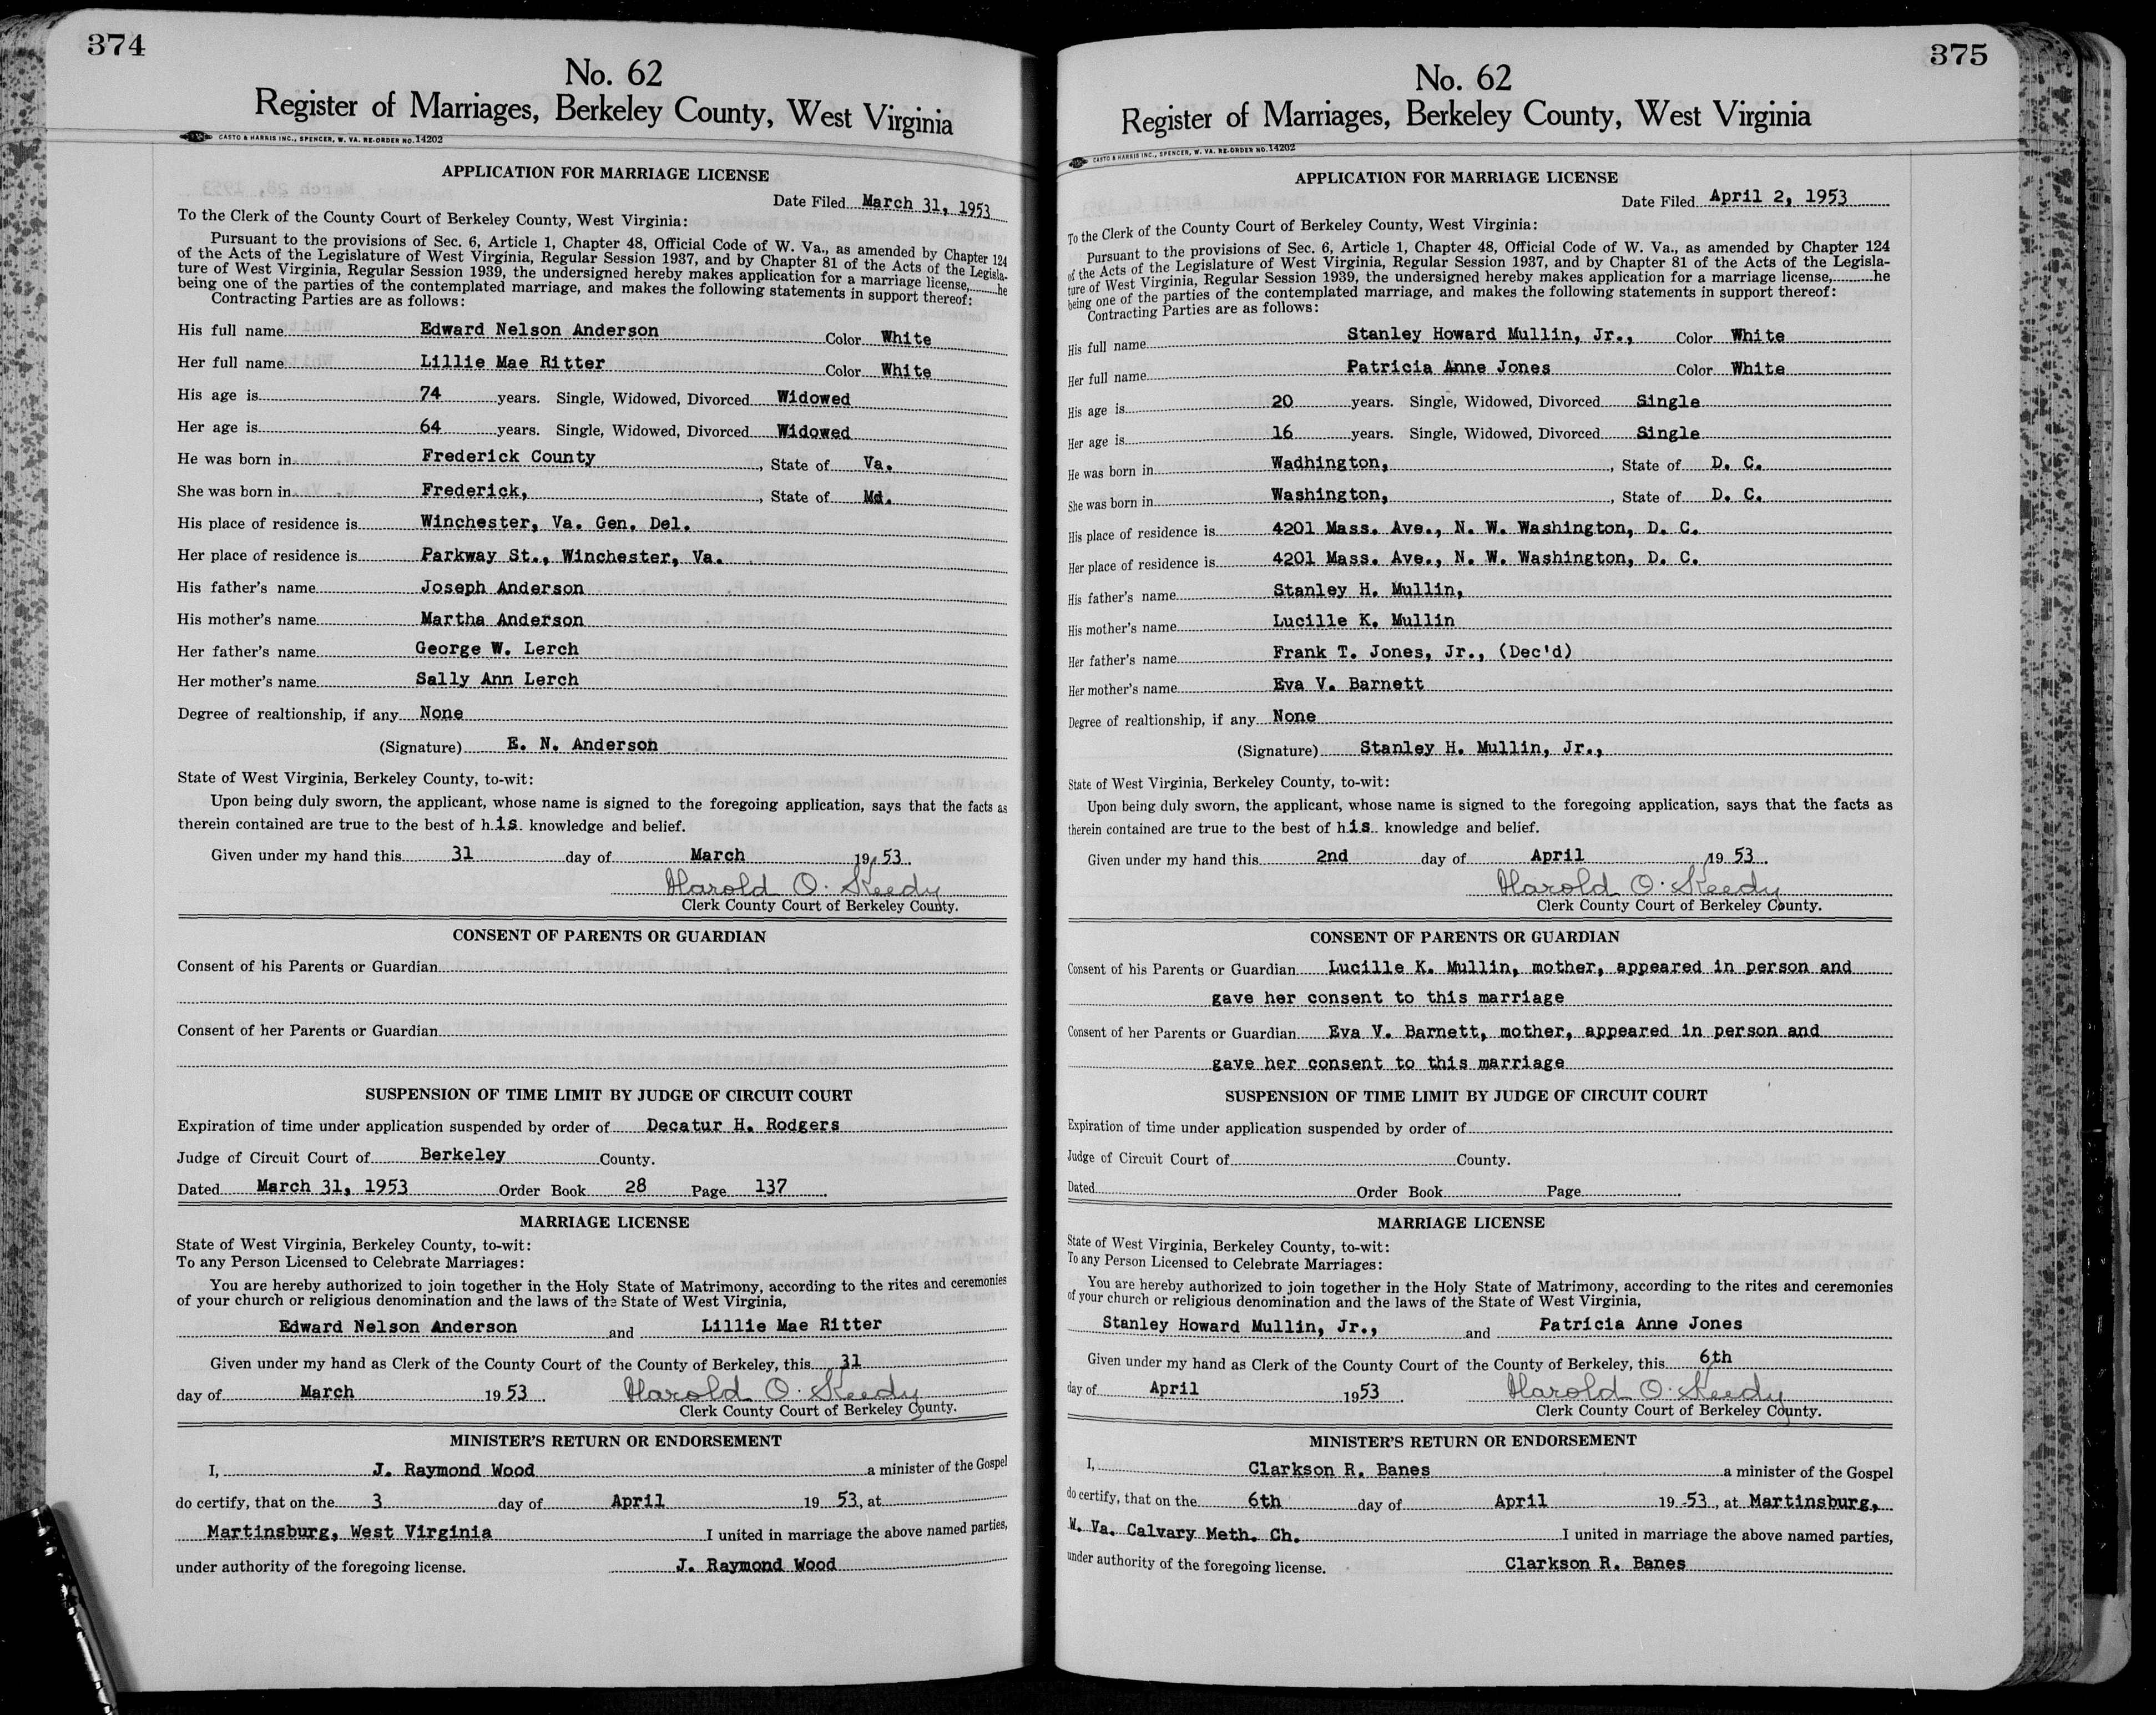 374
No. 62
Register of Marriages, Berkeley County, West Virginia
CASTO & HARRIS INC., SPENCER, W. VA. RE-ORDER NO. 14202
APPLICATION FOR MARRIAGE LICENSE
Date Filed March 31, 1953
To the Clerk of the County Court of Berkeley County, West Virginia:
Pursuant to the provisions of Sec. 6, Article 1, Chapter 48, Official Code of W. Va., as amended by Chapter 124
of the Acts of the Legislature of West Virginia, Regular Session 1937, and by Chapter 81 of the Acts of the Legisla-
ture of West Virginia, Regular Session 1939, the undersigned hereby makes application for a marriage license, he
being one of the parties of the contemplated marriage, and makes the following statements in support thereof:
Contracting Parties are as follows:
His full name Edward Nelson Anderson Color White
Her full name Lillie Mae Ritter Color White
His age is 74 years. Single, Widowed, Divorced Widowed
Her age is 64 years. Single, Widowed, Divorced Widowed
He was born in Frederick County, State of Va.
She was born in Frederick, , State of Md.
His place of residence is Winchester, Va. Gen. Del.
Her place of residence is Parkway St., Winchester, Va.
His father's name Joseph Anderson
His mother's name Martha Anderson
Her father's name George W. Lerch
Her mother's name Sally Ann Lerch
Degree of realtionship, if any None
(Signature) E. N. Anderson
State of West Virginia, Berkeley County, to-wit:
Upon being duly sworn, the applicant, whose name is signed to the foregoing application, says that the facts as
therein contained are true to the best of his knowledge and belief.
Given under my hand this 31 day of March 1953.
Harold O. Keedy
Clerk County Court of Berkeley County.
CONSENT OF PARENTS OR GUARDIAN
Consent of his Parents or Guardian
Consent of her Parents or Guardian
SUSPENSION OF TIME LIMIT BY JUDGE OF CIRCUIT COURT
Expiration of time under application suspended by order of Decatur H. Rodgers
Judge of Circuit Court of Berkeley County.
Dated March 31, 1953 Order Book 28 Page 137
MARRIAGE LICENSE
State of West Virginia, Berkeley County, to-wit:
To any Person Licensed to Celebrate Marriages:
You are hereby authorized to join together in the Holy State of Matrimony, according to the rites and ceremonies
of your church or religious denomination and the laws of the State of West Virginia,
Edward Nelson Anderson and Lillie Mae Ritter
Given under my hand as Clerk of the County Court of the County of Berkeley, this 31
day of March 1953. Harold O. Keedy
Clerk County Court of Berkeley County.
MINISTER'S RETURN OR ENDORSEMENT
I, J. Raymond Wood a minister of the Gospel
do certify, that on the 3 day of April 1953, at
Martinsburg, West Virginia I united in marriage the above named parties,
under authority of the foregoing license. J. Raymond Wood
375
No. 62
Register of Marriages, Berkeley County, West Virginia
CASTO & HARRIS INC., SPENCER, W. VA. RE-ORDER NO. 14202
APPLICATION FOR MARRIAGE LICENSE
Date Filed April 2, 1953
To the Clerk of the County Court of Berkeley County, West Virginia:
Pursuant to the provisions of Sec. 6, Article 1, Chapter 48, Official Code of W. Va., as amended by Chapter 124
of the Acts of the Legislature of West Virginia, Regular Session 1937, and by Chapter 81 of the Acts of the Legisla-
ture of West Virginia, Regular Session 1939, the undersigned hereby makes application for a marriage license, he
being one of the parties of the contemplated marriage, and makes the following statements in support thereof:
Contracting Parties are as follows:
His full name Stanley Howard Mullin, Jr., Color White
Her full name Patricia Anne Jones Color White
His age is 20 years. Single, Widowed, Divorced Single
Her age is 16 years. Single, Widowed, Divorced Single
He was born in Wadhington, , State of D. C.
She was born in Washington, , State of D. C.
His place of residence is 4201 Mass. Ave., N. W. Washington, D. C.
Her place of residence is 4201 Mass. Ave., N. W. Washington, D. C.
His father's name Stanley H. Mullin,
His mother's name Lucille K. Mullin
Her father's name Frank T. Jones, Jr., (Dec'd)
Her mother's name Eva V. Barnett
Degree of realtionship, if any None
(Signature) Stanley H. Mullin, Jr.,
State of West Virginia, Berkeley County, to-wit:
Upon being duly sworn, the applicant, whose name is signed to the foregoing application, says that the facts as
therein contained are true to the best of his knowledge and belief.
Given under my hand this 2nd day of April 1953.
Harold O. Keedy
Clerk County Court of Berkeley County.
CONSENT OF PARENTS OR GUARDIAN
Consent of his Parents or Guardian Lucille K. Mullin, mother, appeared in person and
gave her consent to this marriage
Consent of her Parents or Guardian Eva V. Barnett, mother, appeared in person and
gave her consent to this marriage
SUSPENSION OF TIME LIMIT BY JUDGE OF CIRCUIT COURT
Expiration of time under application suspended by order of
Judge of Circuit Court of County.
Dated Order Book Page
MARRIAGE LICENSE
State of West Virginia, Berkeley County, to-wit:
To any Person Licensed to Celebrate Marriages:
You are hereby authorized to join together in the Holy State of Matrimony, according to the rites and ceremonies
of your church or religious denomination and the laws of the State of West Virginia,
Stanley Howard Mullin, Jr., and Patricia Anne Jones
Given under my hand as Clerk of the County Court of the County of Berkeley, this 6th
day of April 1953. Harold O. Keedy
Clerk County Court of Berkeley County.
MINISTER'S RETURN OR ENDORSEMENT
I, Clarkson R. Banes a minister of the Gospel
do certify, that on the 6th day of April 1953, at Martinsburg,
W. Va. Calvary Meth. Ch. I united in marriage the above named parties,
under authority of the foregoing license. Clarkson R. Banes